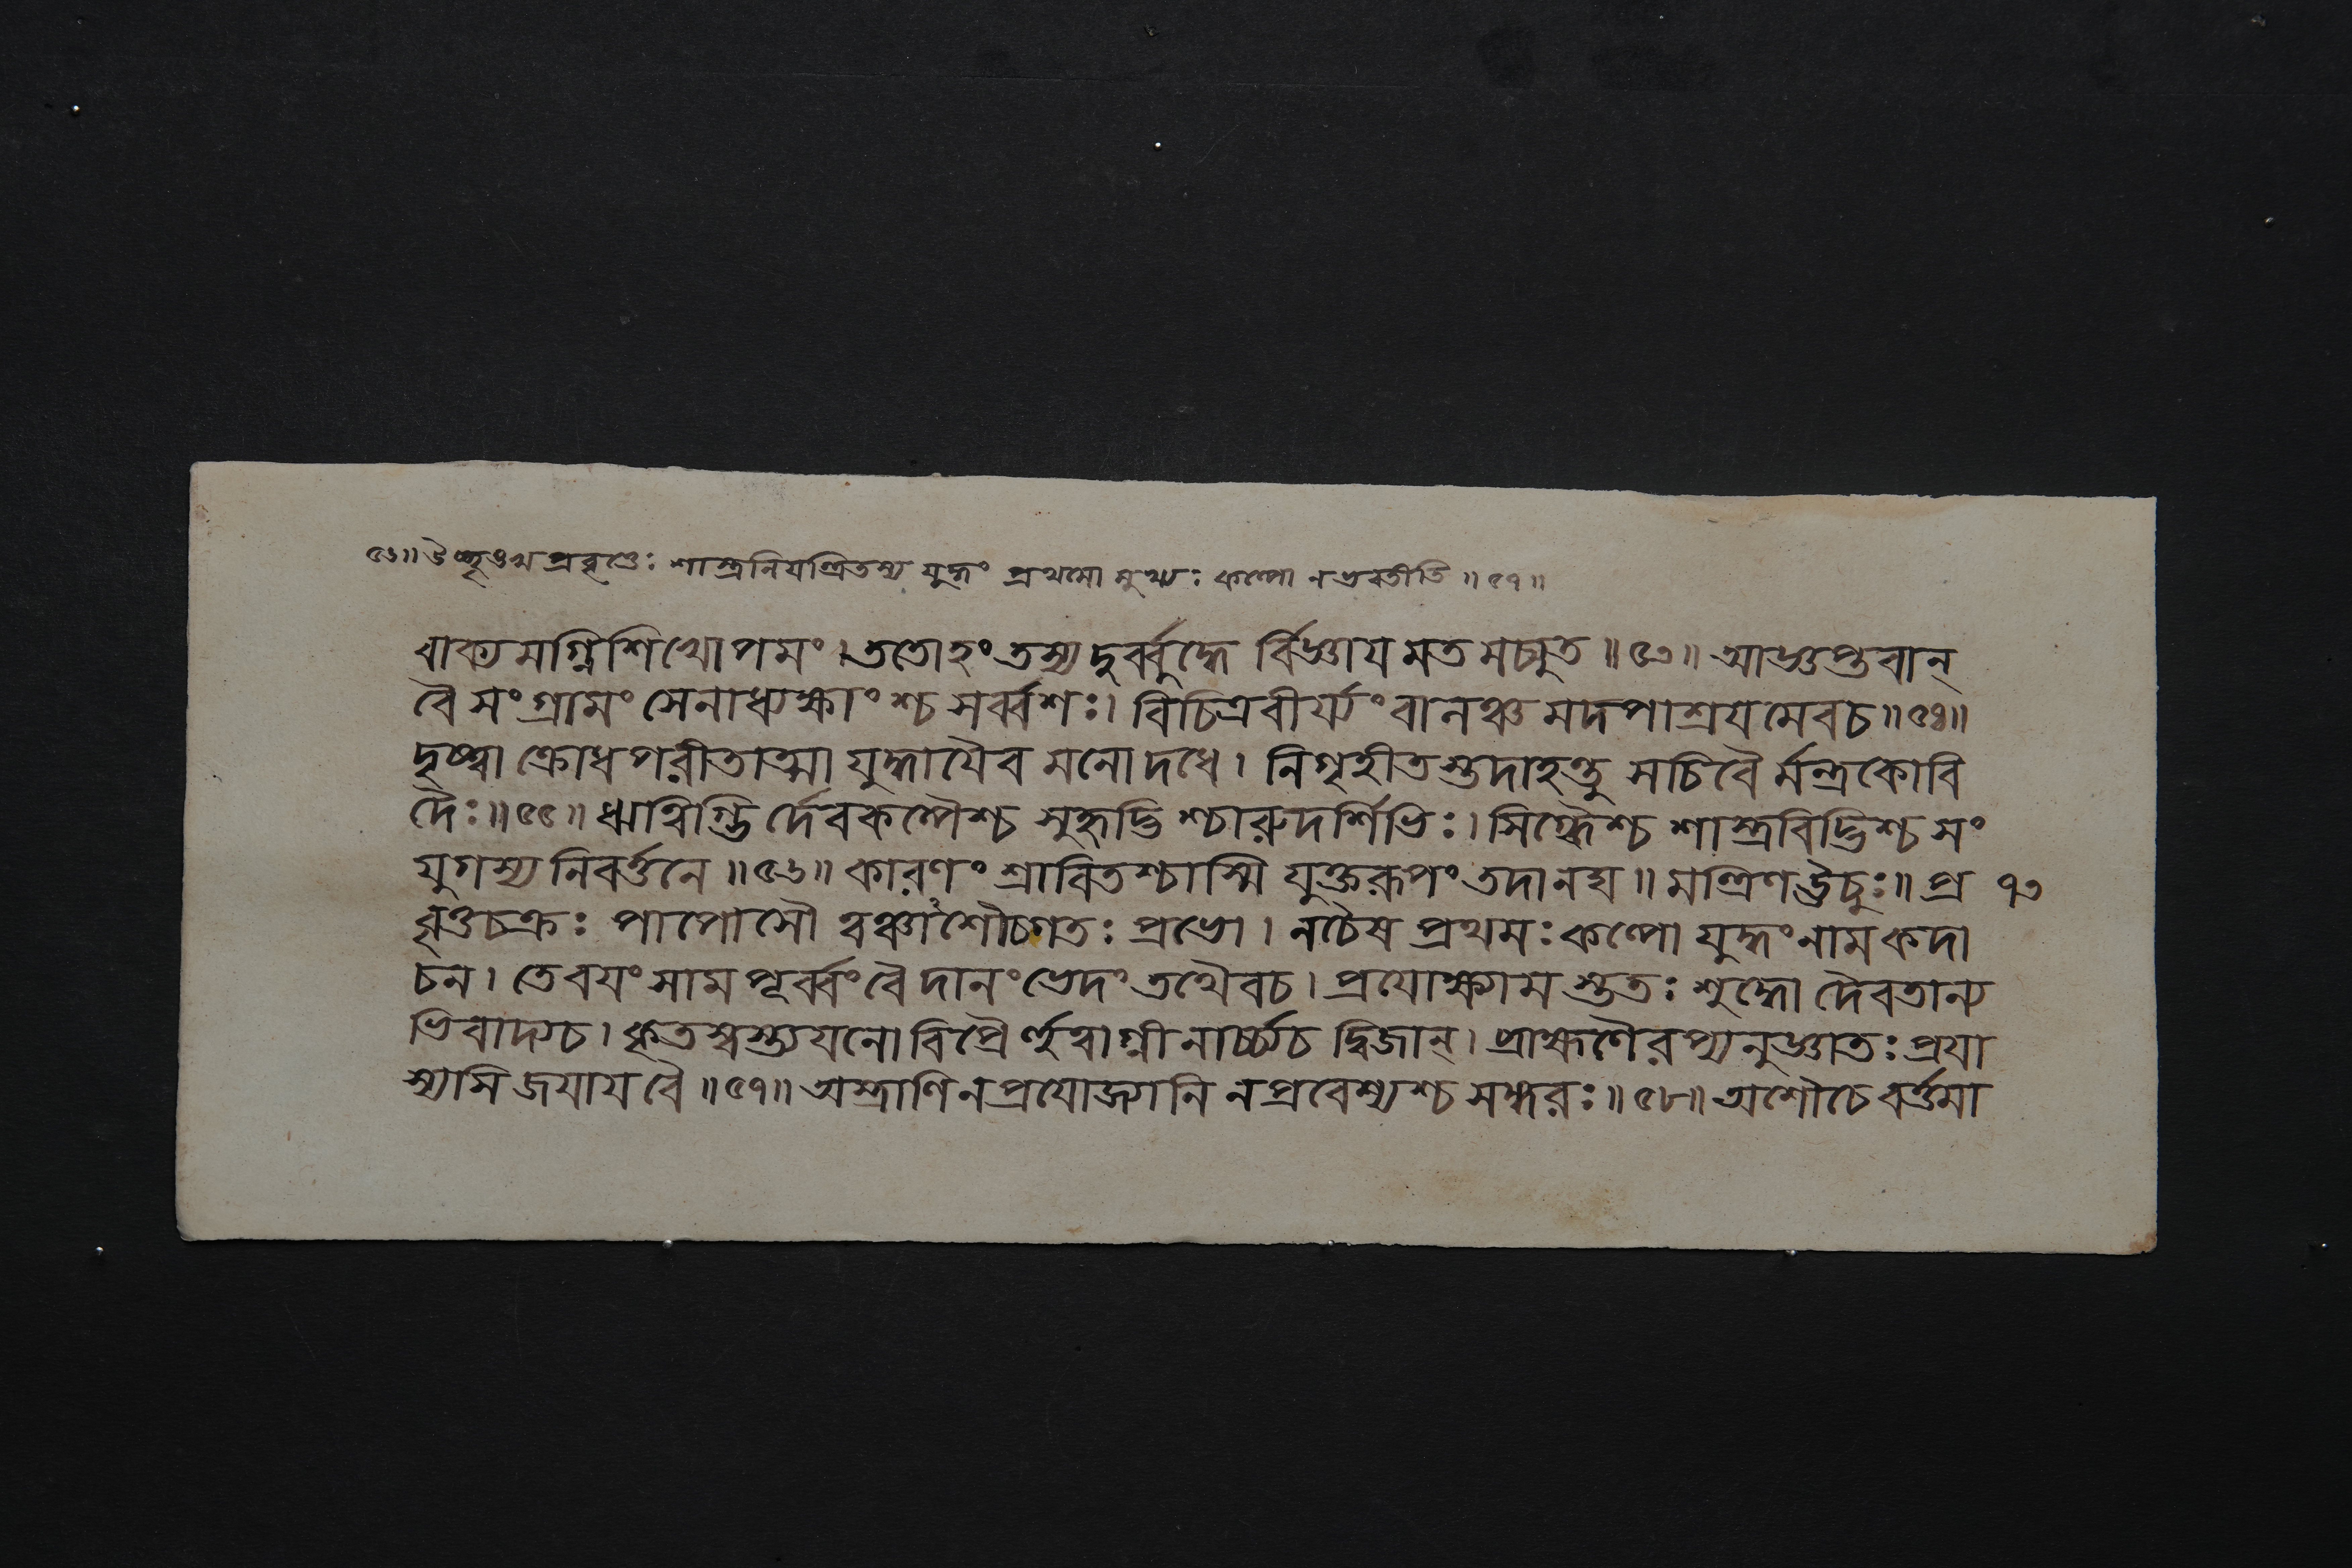 ৫৬॥ উ শাস্ত্রনিযন্ত্রিতস্য যুদ্ধং প্রথমো মুখ্যঃ কল্পো ন ভবতীতি ॥ ৫৭ ॥
বাক্যমগ্নিশিখোপমং। ততোহং তস্য দুর্ব্বুদ্ধে র্বিজ্ঞায মত মচ্যুত ॥ ৫৩ ॥ আজ্ঞপ্তবান্
বৈ সংগ্রামং সেনাধ্যক্ষাংশ্চ সর্ব্বশঃ। বিচিত্রবীর্য্যং বালঞ্চ মদপাশ্রযমেবচ ॥ ৫৪ ॥
দৃষ্ট্বা ক্রোধপরীতাত্মা যুদ্ধাযৈব মনোদধে। নিগৃহীতস্তুদাহন্তু সচিবৈ র্মন্ত্রকোবি
দৈঃ ॥ ৫৫ ॥ ঋত্বিগ্ভি র্দেবকল্পৈশ্চ সুহৃদ্ভি শ্চারুদর্শিভিঃ। স্নিগ্ধৈশ্চ শাস্ত্রবিদ্ভিশ্চ সং
যুগস্য নিবর্ত্তনে ॥ ৫৬ ॥ কারণং শ্রাবিতশ্চাস্মি যুক্তরূপং তদানঘ ॥ মন্ত্রিণ ঊচুঃ ॥ প্র ৭৩
বৃত্তচক্রঃ পাপোসৌ ত্বঞ্চাশৌচগতঃ প্রভো। নচৈষ প্রথমঃ কল্পো যুদ্ধং নাম কদা
চন। তে বযং সাম পূর্ব্বং বৈ দানং ভেদং তথৈবচ। প্রযোক্ষ্যাম স্ততঃ শুদ্ধো দৈবতান্য
ভিবাদ্যচ। কৃতস্বস্ত্যযনো বিপ্রৈ র্হুত্বাগ্নীনার্চ্চ্যচ দ্বিজান্। ব্রাহ্মণৈরপ্যনুজ্ঞাতঃ প্রযা
স্যসি জযায বৈ ॥ ৫৭ ॥ অস্ত্রাণি ন প্রযোজ্যানি ন প্রবেশ্যশ্চ সঙ্গরঃ ॥ ৫৮ ॥ অশৌচে বর্ত্তমা